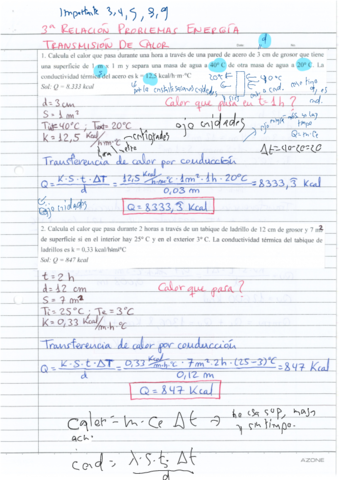 Importante 3,4,5,8,9
3ª RELACIÓN PROBLEMAS ENERGÍA
TRANSMISIÓN DE CALOR
1. Calcula el calor que pasa durante una hora a través de una pared de acero de 3 cm de grosor que tiene
una superficie de 1 m x 1 m y separa una masa de agua a 40° C de otra masa de agua a 20° C. La
conductividad térmica del acero es k = 12,5 kcal/h·m·°C
Sol: Q = 8.333 kcal
d = 3 cm
Calor que pasa en t = 1h?
S = 1 m²
40°C ; 20°C
ojo unidades
K = 12,5 Kcal/h·m·°C
Transferencia de calor por conducción
Q = K·S·t·ΔT/d = 12,5 Kcal/h·m·°C · 1m² · 1h · 20°C/0,03 m = 8333,3 Kcal
Q = 8333,3 Kcal
2. Calcula el calor que pasa durante 2 horas a través de un tabique de ladrillo de 12 cm de grosor y 7 m²
de superficie si en el interior hay 25° C y en el exterior 3° C. La conductividad térmica del tabique de
ladrillos es k = 0,33 kcal/hm°C
Sol: Q = 847 kcal
t = 2 h
d = 12 cm
Calor que pasa?
S = 7 m²
Ti = 25°C ; Te = 3°C
K = 0,33 Kcal/m·h·°C
Transferencia de calor por conducción
Q = K·S·t·ΔT/d = 0,33 Kcal/m·h·°C · 7m² · 2h · (25-3)°C/0,12 m = 847 Kcal
Q = 847 Kcal
Calor = m · Ce Δt ⇒ no esa sup, masa
y sin tiempo.
cond = λ·S·t·Δt/d
AZONE